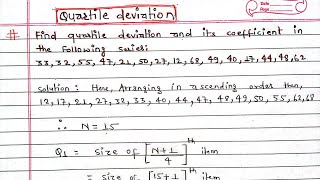 Quartile deviation
# Find quartile deviation and its coefficient in
the following series:
33, 32, 55, 47, 21, 50, 27, 12, 68, 49, 40, 17, 44, 48, 62
Solution: Here, Arranging in ascending order then,
12, 17, 21, 27, 32, 33, 40, 44, 47, 48, 49, 50, 55, 62, 68
∴ N = 15
Q₁ = Size of [N+1/4]ᵗʰ item
= Size of [15+1]ᵗʰ item